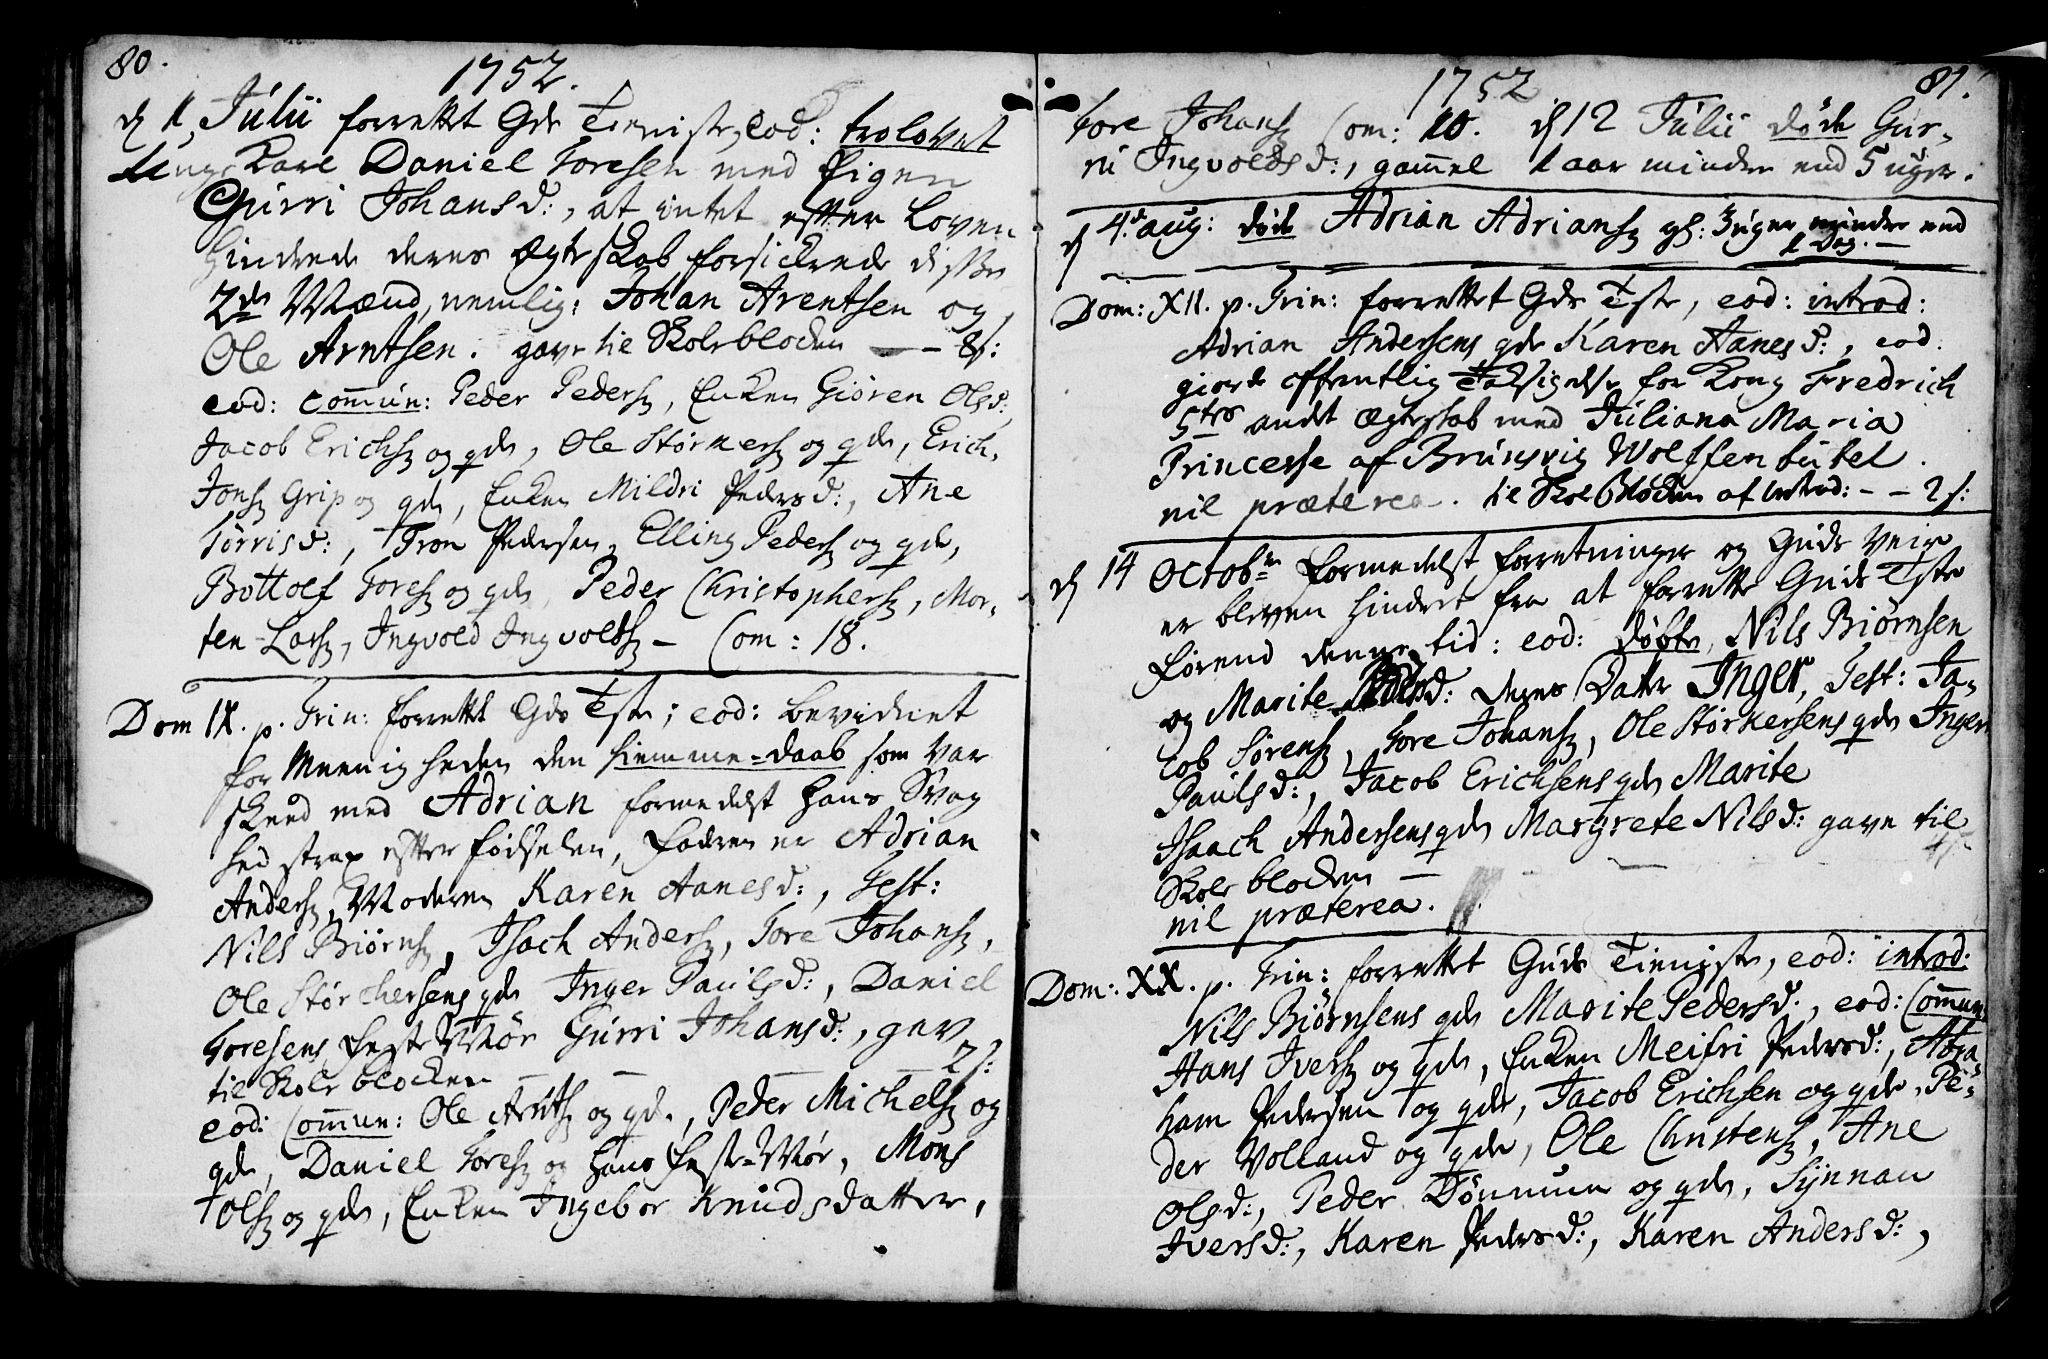 80.
1752.
d 11, Julii forrettet Gds Tieniste, eod: trolovet
Ungs Karl Daniel Toresen med Pigen
Gurri Johansd:, at intet efter Loven
hindrede deres Ægteskab forsickrede disse
2de Mænd, nemlig: Johan Arentsen og,
Ole Arntsen. gave til Skoleblocken — - 8 s:
eod: Commun: Peder Peders, Enken Giøren Olsd:,
Jacob Erichs og qde, Ole Størkers og qde, Erich
Jons Grip og qde, Enken Mildri Pedersd:, Ane
Torrisd:, Tron Pedersen, Elling Peders og qde,
Bottolf Tores og qde, Peder Christophers, Mor-
ten Lars, Ingvold Ingvolds — Com: 18.
Dom IX. p. Trin: forrettet Gds Tste; eod: bevidnet
for Meenigheden den hiemme-daab som var
skeed med Adrian formedelst hans Svag
hed strax efter fødselen, Faderen er Adrian
Anders, Moderen Karen Aanesd:, Test:
Nils Biørns, Isach Anders, Tore Johans,
Ole Størchersens qde Inger Paulsd:, Daniel
Toresens Feste Møe Gurri Johansd:, gav
til Skole blocken — — — 2 s:
eod: Commun: Ole Arnts og qde, Peder Michels og
qde, Daniel Tores og hans Feste-Møe, Mons
Ols og qde, Enken Ingebor Knudsdatter,
1752
81.
Tore Johans Com: 10. d 12 Julii døde Gur-
ri Ingvoldsd:, gammel 1 aar minder end 5 uger.
d 4de aug: døde Adrian Adrians gl: 3 uger mindre end
1 Dag. —
Dom: XII. p. Trin: forrettet Gds Tste, eod: introd:
Adrian Andersens qde Karen Aanesd:, eod.
giorde offentlig Taksigelse for Kong Fredrich
5tes andet Ægteskab med Juliana Maria
Princesse af Brunsvig Wolffenbutel.
nil præterea. til Skole Blocken af introd: - - 2 s:
d 14 Octobr formedelst forretninger og Guds Veir
er bleven hindret fra at forrette Guds Tste
førend denne tid: eod: døbte Nils Biørnsen
og Marite Pedersd: deres Datter Inger, Test: Ja-
cob Sørens, Tore Johans, Ole Størkersens qde Inger
Paulsd:, Jacob Erichsens qde Marite
Isaach Andersens qde Margrete Nilsd: gave til
Skole blocken — - — 4 s:
nil præterea.
Dom: XX. p. Trin: forrettet Guds Tieniste, eod: introd:
Nils Biørnsens qde Marite Pedersd:, eod: Commun:
Hans Ivers og qde, Enken Meifri Pedersd:, Abra
ham Pedersen og qde, Jacob Erichsen og qde, Pe-
der Volland og qde, Ole Christens, Ane
Olsd:, Peder Dønnum og qde, Synnau
Iversd:, Karen Pedersd:, Karen Andersd:,